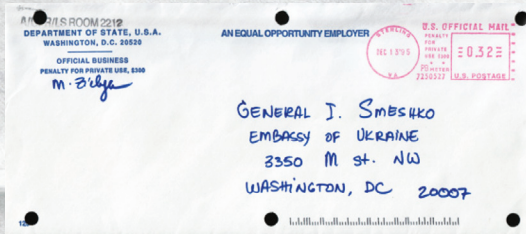 A/MMR/LS ROOM 2212
DEPARTMENT OF STATE, U.S.A.
WASHINGTON, D.C. 20520
OFFICIAL BUSINESS
PENALTY FOR PRIVATE USE, $300
AN EQUAL OPPORTUNITY EMPLOYER
STERLING
DEC 13'95
VA
U.S. OFFICIAL MAIL
PENALTY
FOR
PRIVATE
USE $300
PB METER
7250527
0.32
U.S. POSTAGE
GENERAL I. SMESHKO
EMBASSY OF UKRAINE
3350 M St. NW
WASHINGTON, DC 20007